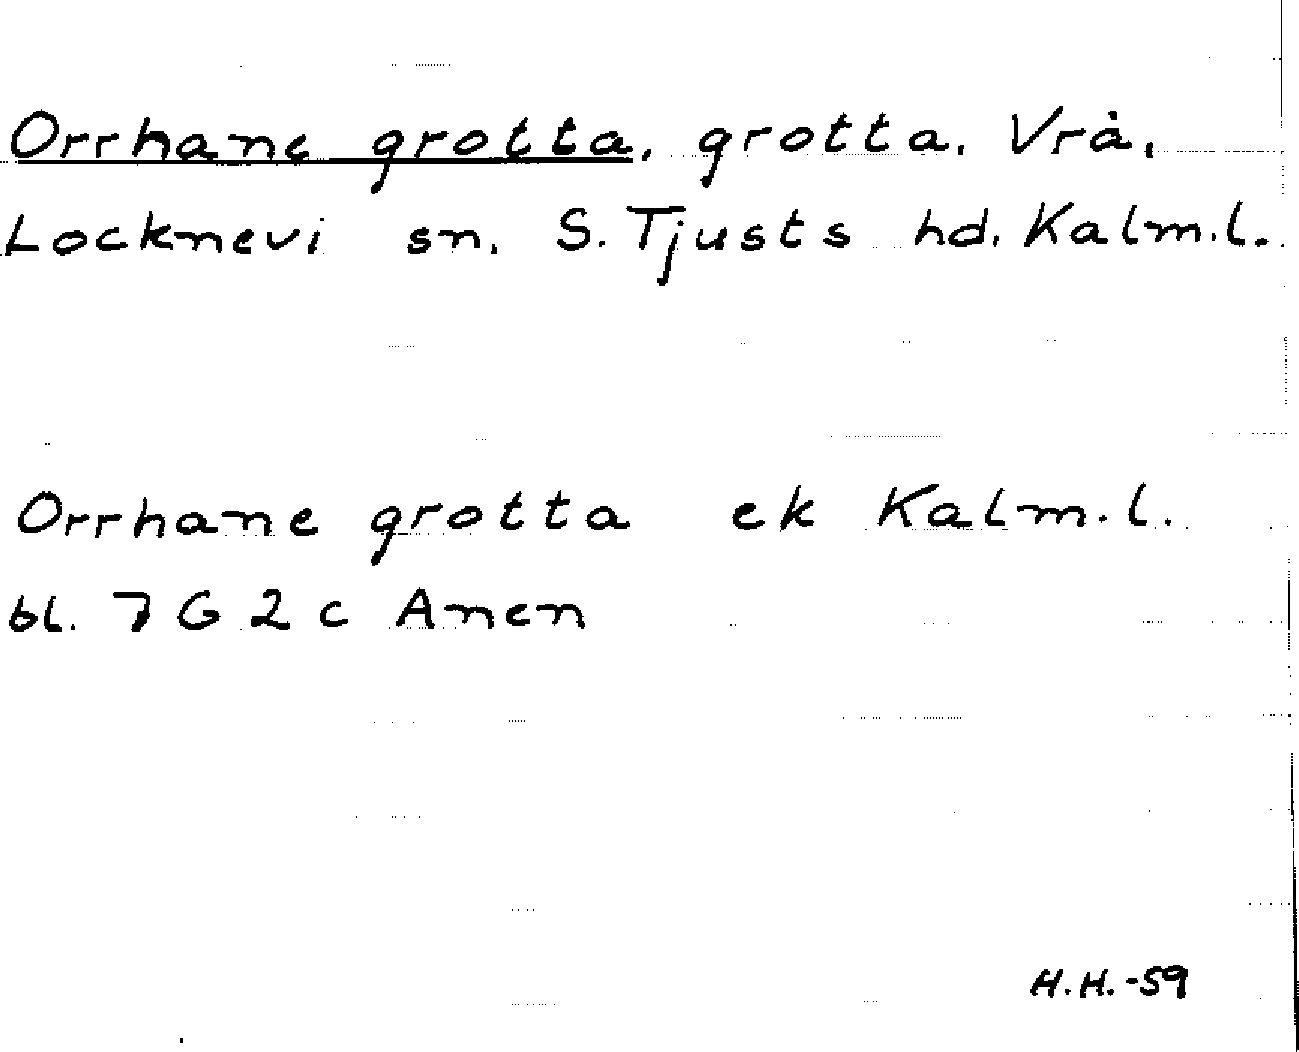 Orrhane grotta, grotta, Vrå,
Locknevi sn. S. Tjusts hd. Kalm.l.
Orrhane grotta ek Kalm.l.
bl. 7 G 2 c Anen
H.H.-59